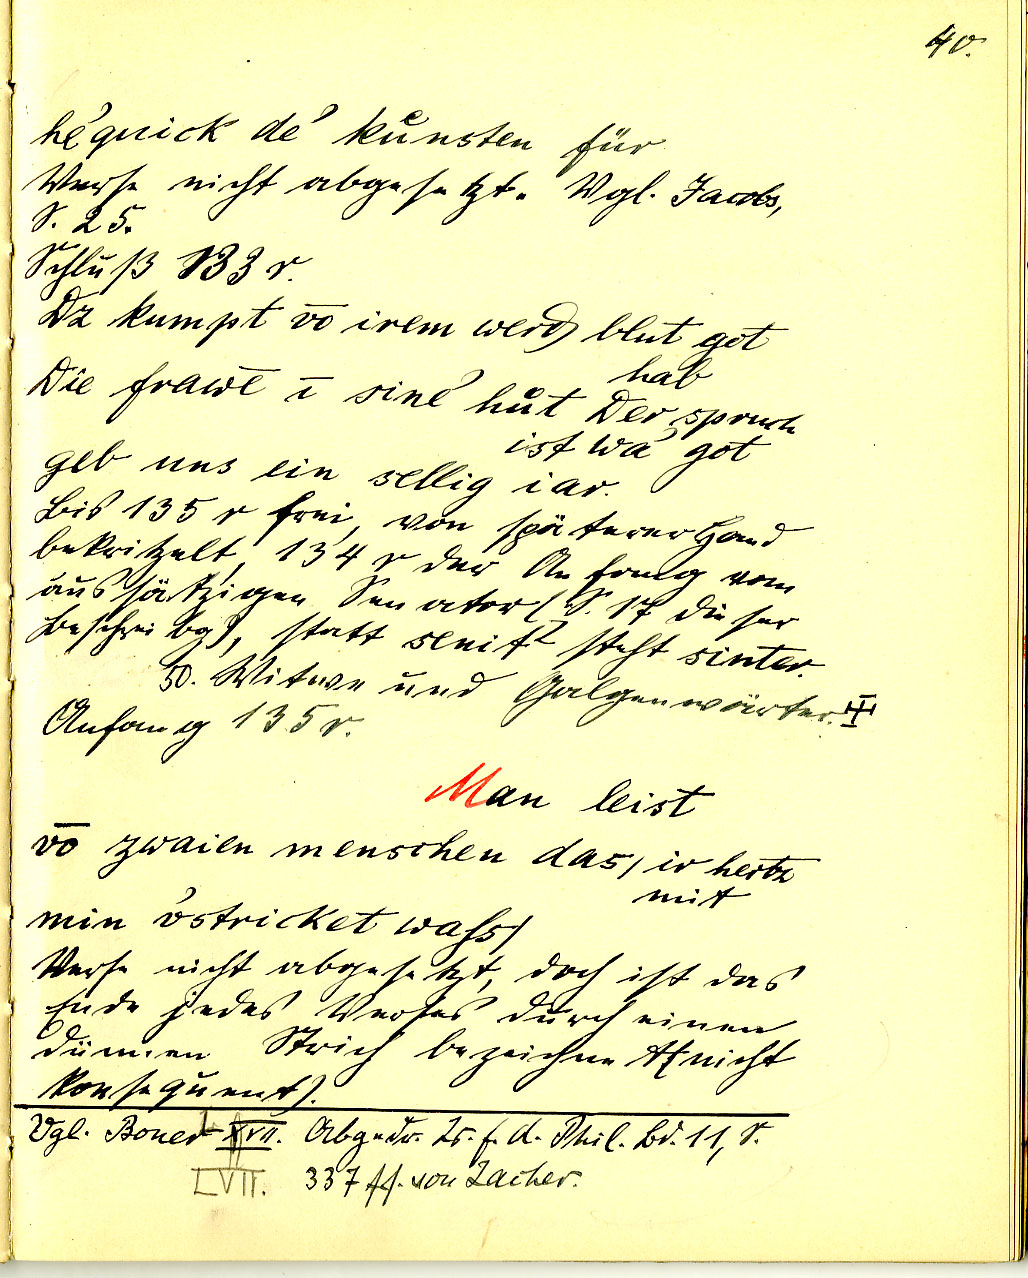 40.
he'quick de' kuͤnsten für
Verse nicht abgesetzt. Vgl. Jacobs,
S. 25.
Schluß 133 r.
Dz kumpt vō irem werd blut got
hab
Die frawē ī sine' huͦt Der spruch
ist wa' got
geb uns ein sellig iar.
Bis 135 r frei, von späterer Hand
bekritzelt, 134 r der Anfang vom
aussätzigen Senator (S. 17 dieser
Beschreibg), statt senit² steht sinter.
50. Witwe und Galgenwärter.
Anfang 135 r.
Man leist
vō zwaien menschen das/ ir hertz
mit
min v'stricket wass/
Verse nicht abgesetzt, doch ist das
Ende jedes Verses durch einen
dünnen Strich bezeichnet (nicht
konsequent).
Vgl. Boner XVII. Abgedr. Zs. f. d. Phil. Bd. 11, S.
LVII. 337 ff. von Zacher.